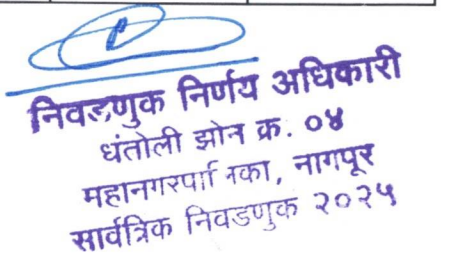 निवडणुक निर्णय अधिकारी
धंतोली झोन क्र. ०४
महानगरपा नका, नागपूर
सार्वत्रिक निवडणुक २०२५